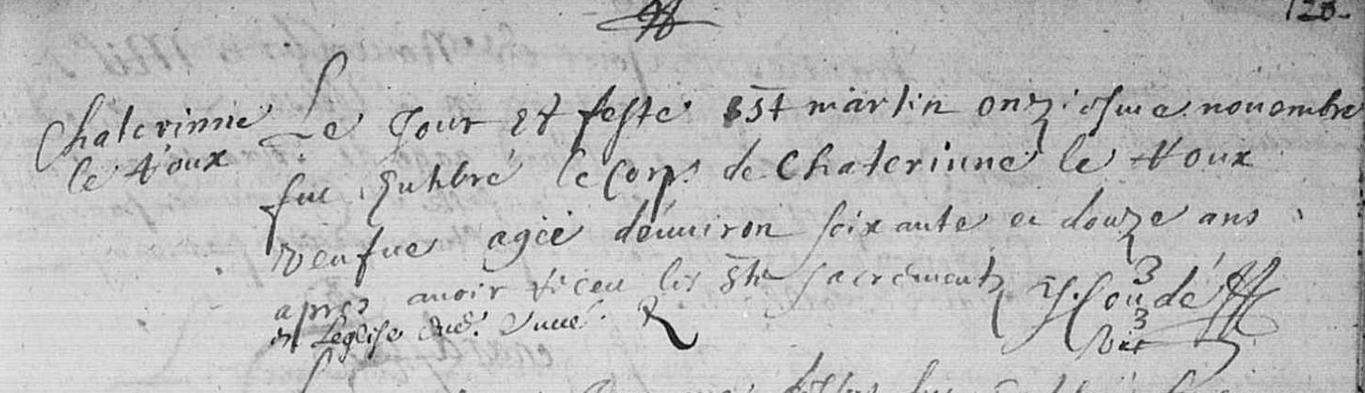 128.
Chaterinne
le Roux
Le Jour et feste St martin onziesme nouembre
fut Enhbré le corps de Chaterinne le Roux
veufue agée déuuiron soixante et douze ans
apres auoir receu les Sts sacrements
en Leglise